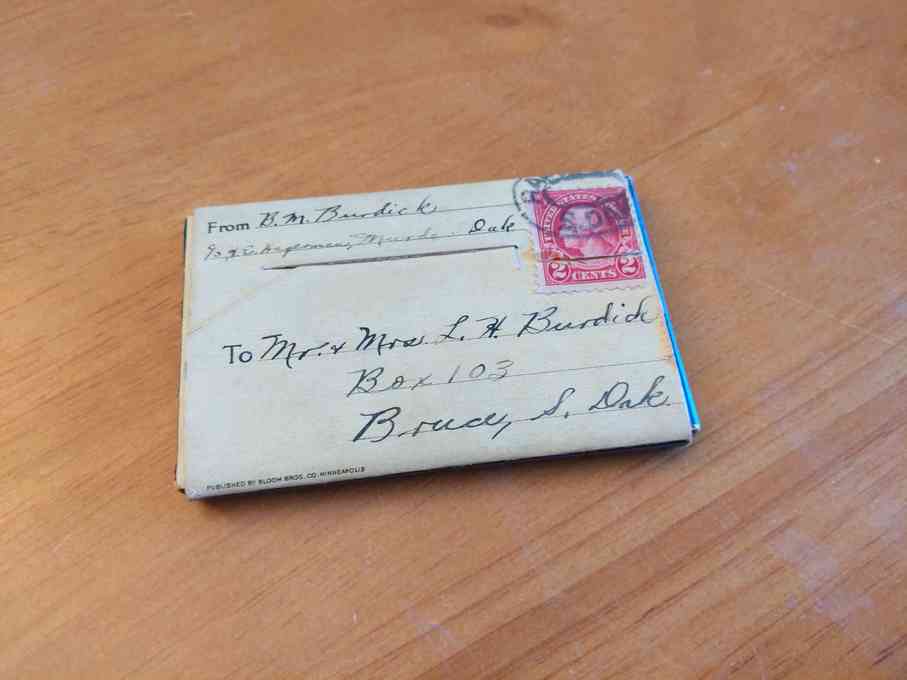 From B. M. Burdick
Murdo Dak
UNITED STATES
2 CENTS 2
S. DAK
To Mr. & Mrs. L. H. Burdick
Box 103
Bruce, S. Dak.
PUBLISHED BY BLOOM BROS. CO. MINNEAPOLIS